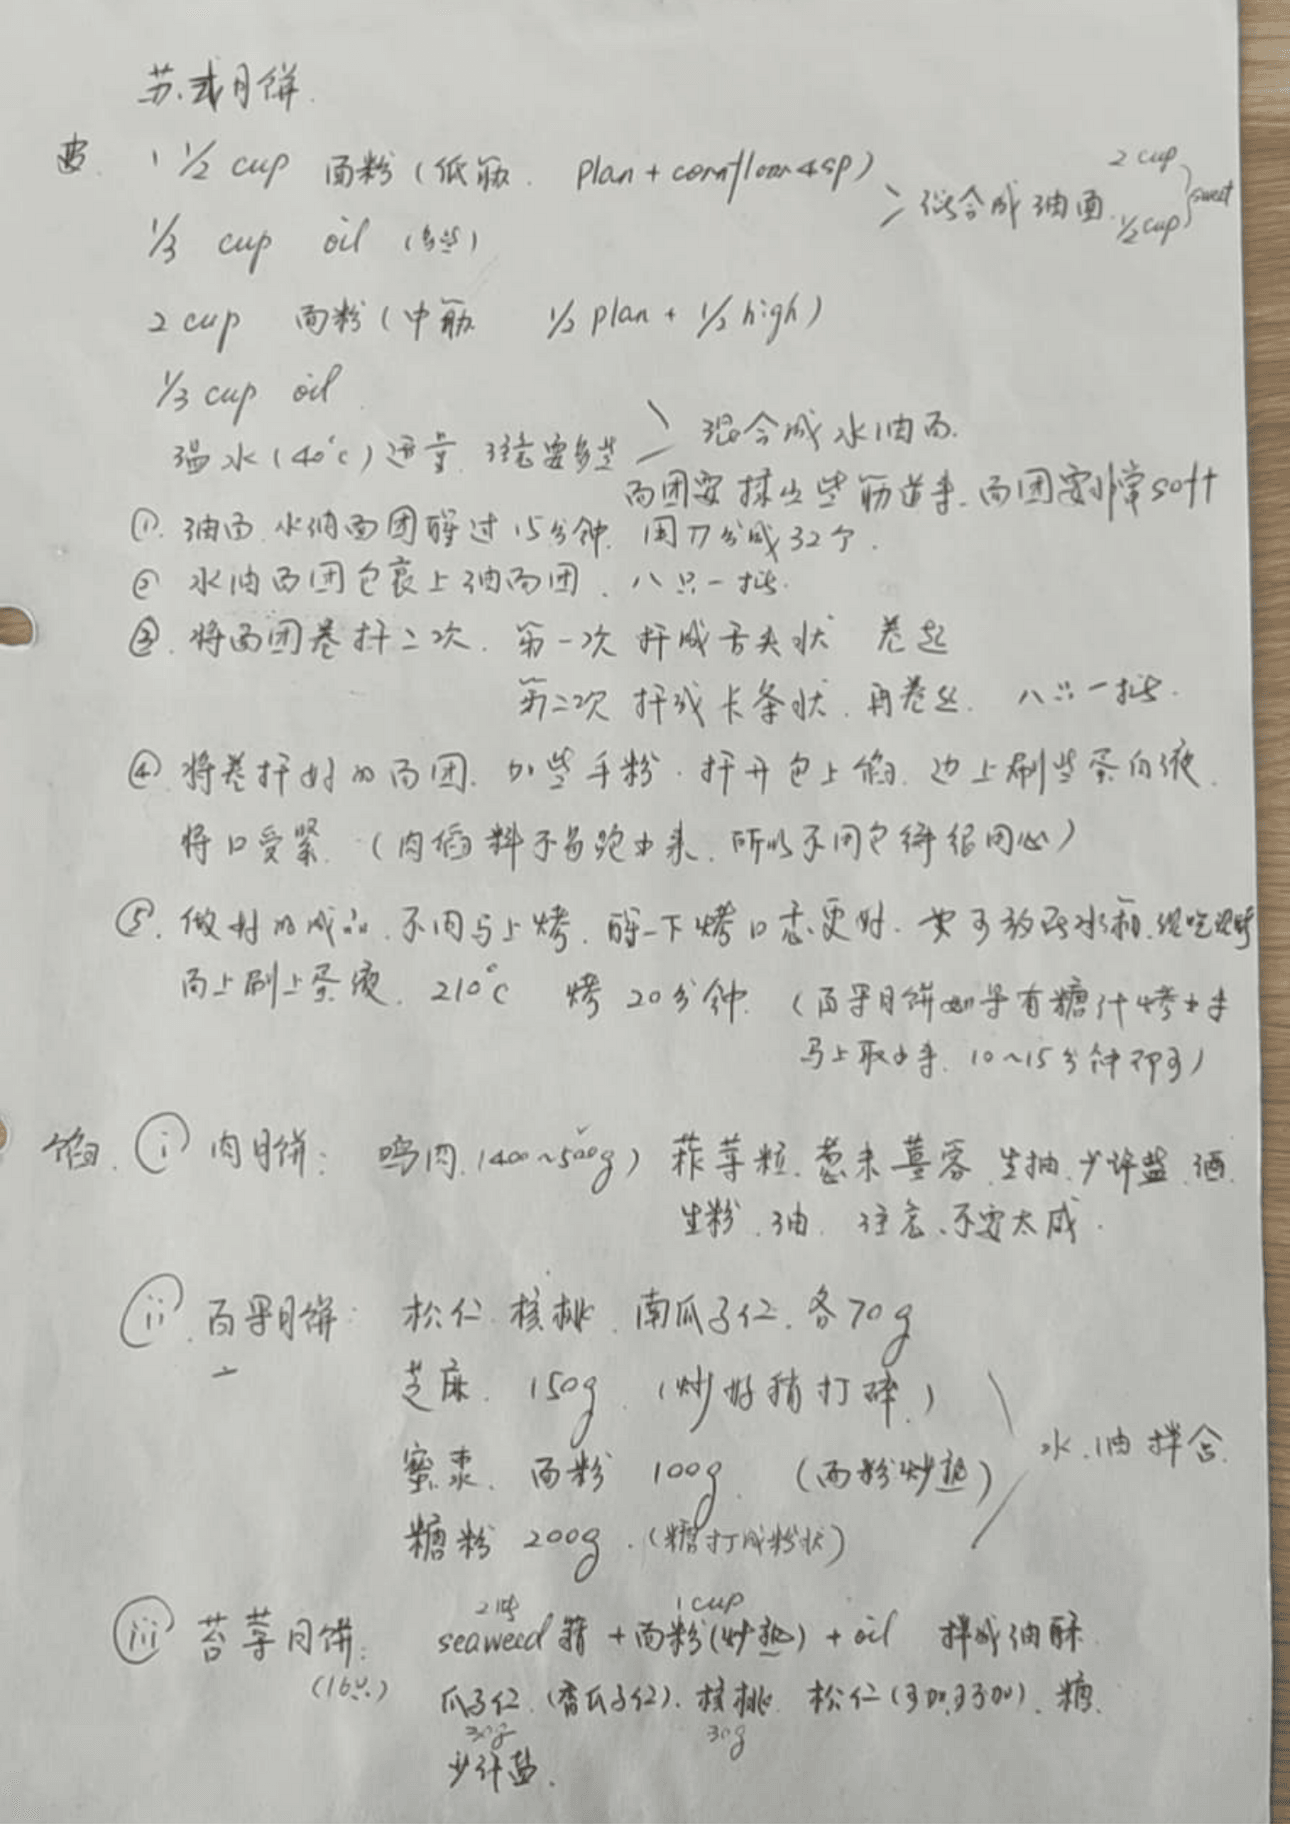 苏式月饼.
1 1/2 cup 面粉 (低筋. plan + cornflour 4sp)
2 cup
混合成油面.
sweet
1/2 cup
1/3 cup oil (多些)
2 cup 面粉 (中筋 1/2 plan + 1/2 high)
1/3 cup oil
温水 (40°c) 适量. 注意要多些
混合成水油面.
面团要揉出些筋道来. 面团要非常 soft
① 油面. 水油面团醒过15分钟. 用刀分成32个.
② 水油面团包裹上油面团. 八只一批.
③. 将面团卷扞二次. 第一次 扞成舌头状 卷起
第二次 扞成长条状. 再卷起. 八只一批.
④ 将卷扞好的面团. 加些手粉. 扞开包上馅. 边上刷些蛋白液.
将口受紧. (肉馅料不易跑出来. 所以不用包得很用心)
⑤. 做好的成品. 不用马上烤. 醒一下烤口感更好. 也可放在冰箱. 现吃现烤
面上刷上蛋液. 210°c 烤 20分钟. (百果月饼 如果有糖汁烤出来
马上取出来. 10~15分钟即可)
馅. ⓘ 肉月饼: 鸡肉. (400~500g) 葱末 姜蓉. 生抽. 少许盐. 酒.
生粉. 油. 注意. 不要太咸.
ⅱ. 百果月饼: 松仁. 核桃. 南瓜子仁. 各70g
芝麻. 150g. (炒好稍打碎.)
蜜枣. 面粉 100g. (面粉炒熟)
水. 油拌合.
糖粉 200g. (糖打成粉状)
1 cup
ⅲ 苔菜月饼: seaweed + 面粉(炒熟) + oil 拌成油酥.
(16只.) 瓜子仁. (香瓜子仁). 核桃. 松仁. 糖.
30g 30g
少许盐.